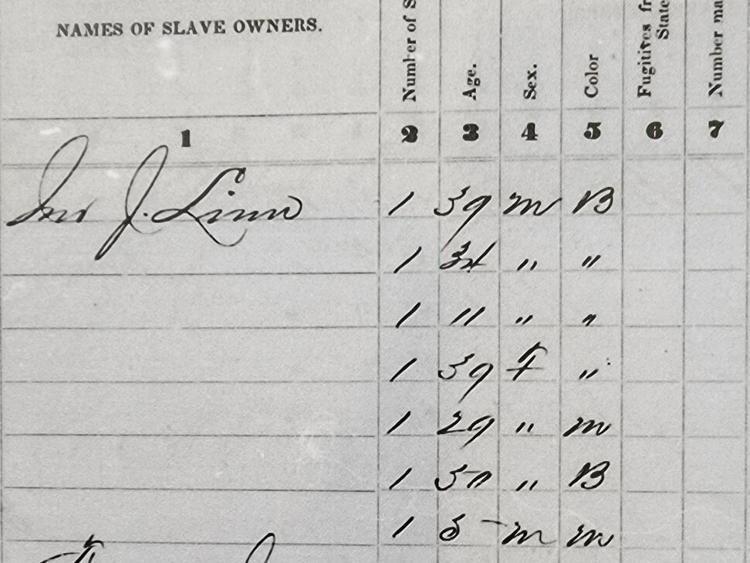 NAMES OF SLAVE OWNERS.
Number of S
Age.
Sex.
Color
Fugitives fr
State
Number ma
1 2 3 4 5 6 7
Jno J. Linn 1 39 m B
1 34 " "
1 11 " "
1 39 f "
1 29 " m
1 50 " B
1 5 m m